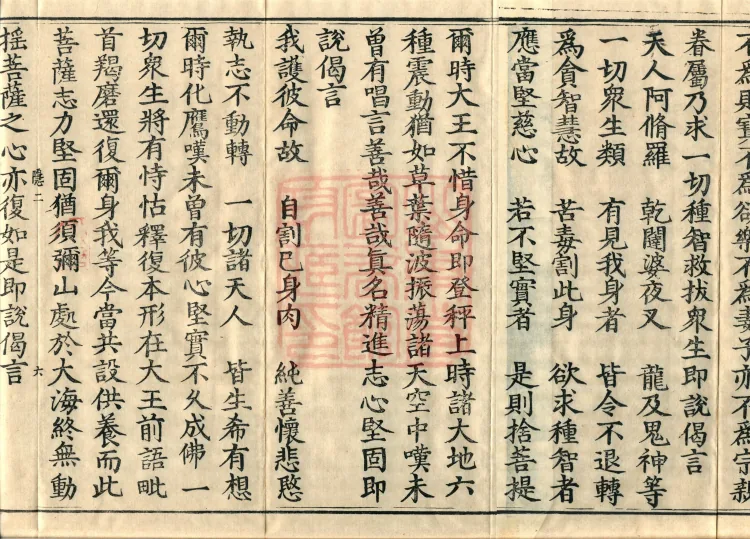 不爲具實不爲欲樂不爲妻子亦不爲宗親
眷屬乃求一切種智救拔衆生即說偈言
天人阿脩羅 乾闥婆夜叉 龍及鬼神等
一切衆生類 有見我身者 皆令不退轉
爲貪智慧故 苦毒割此身 欲求種智者
應當堅慈心 若不堅實者 是則捨菩提
爾時大王不惜身命即登秤上時諸大地六
種震動猶如草葉隨波振蕩諸天空中嘆未
曾有唱言善哉善哉真名精進志心堅固即
說偈言
我護彼命故 自割己身肉 純善懷悲愍
執志不動轉 一切諸天人 皆生希有想
爾時化鷹嘆未曾有彼心堅實不久成佛一
切衆生將有恃怙釋復本形在大王前語毗
首羯磨還復爾身我等今當共設供養而此
菩薩志力堅固猶須彌山處於大海終無動
搖菩薩之心亦復如是即說偈言